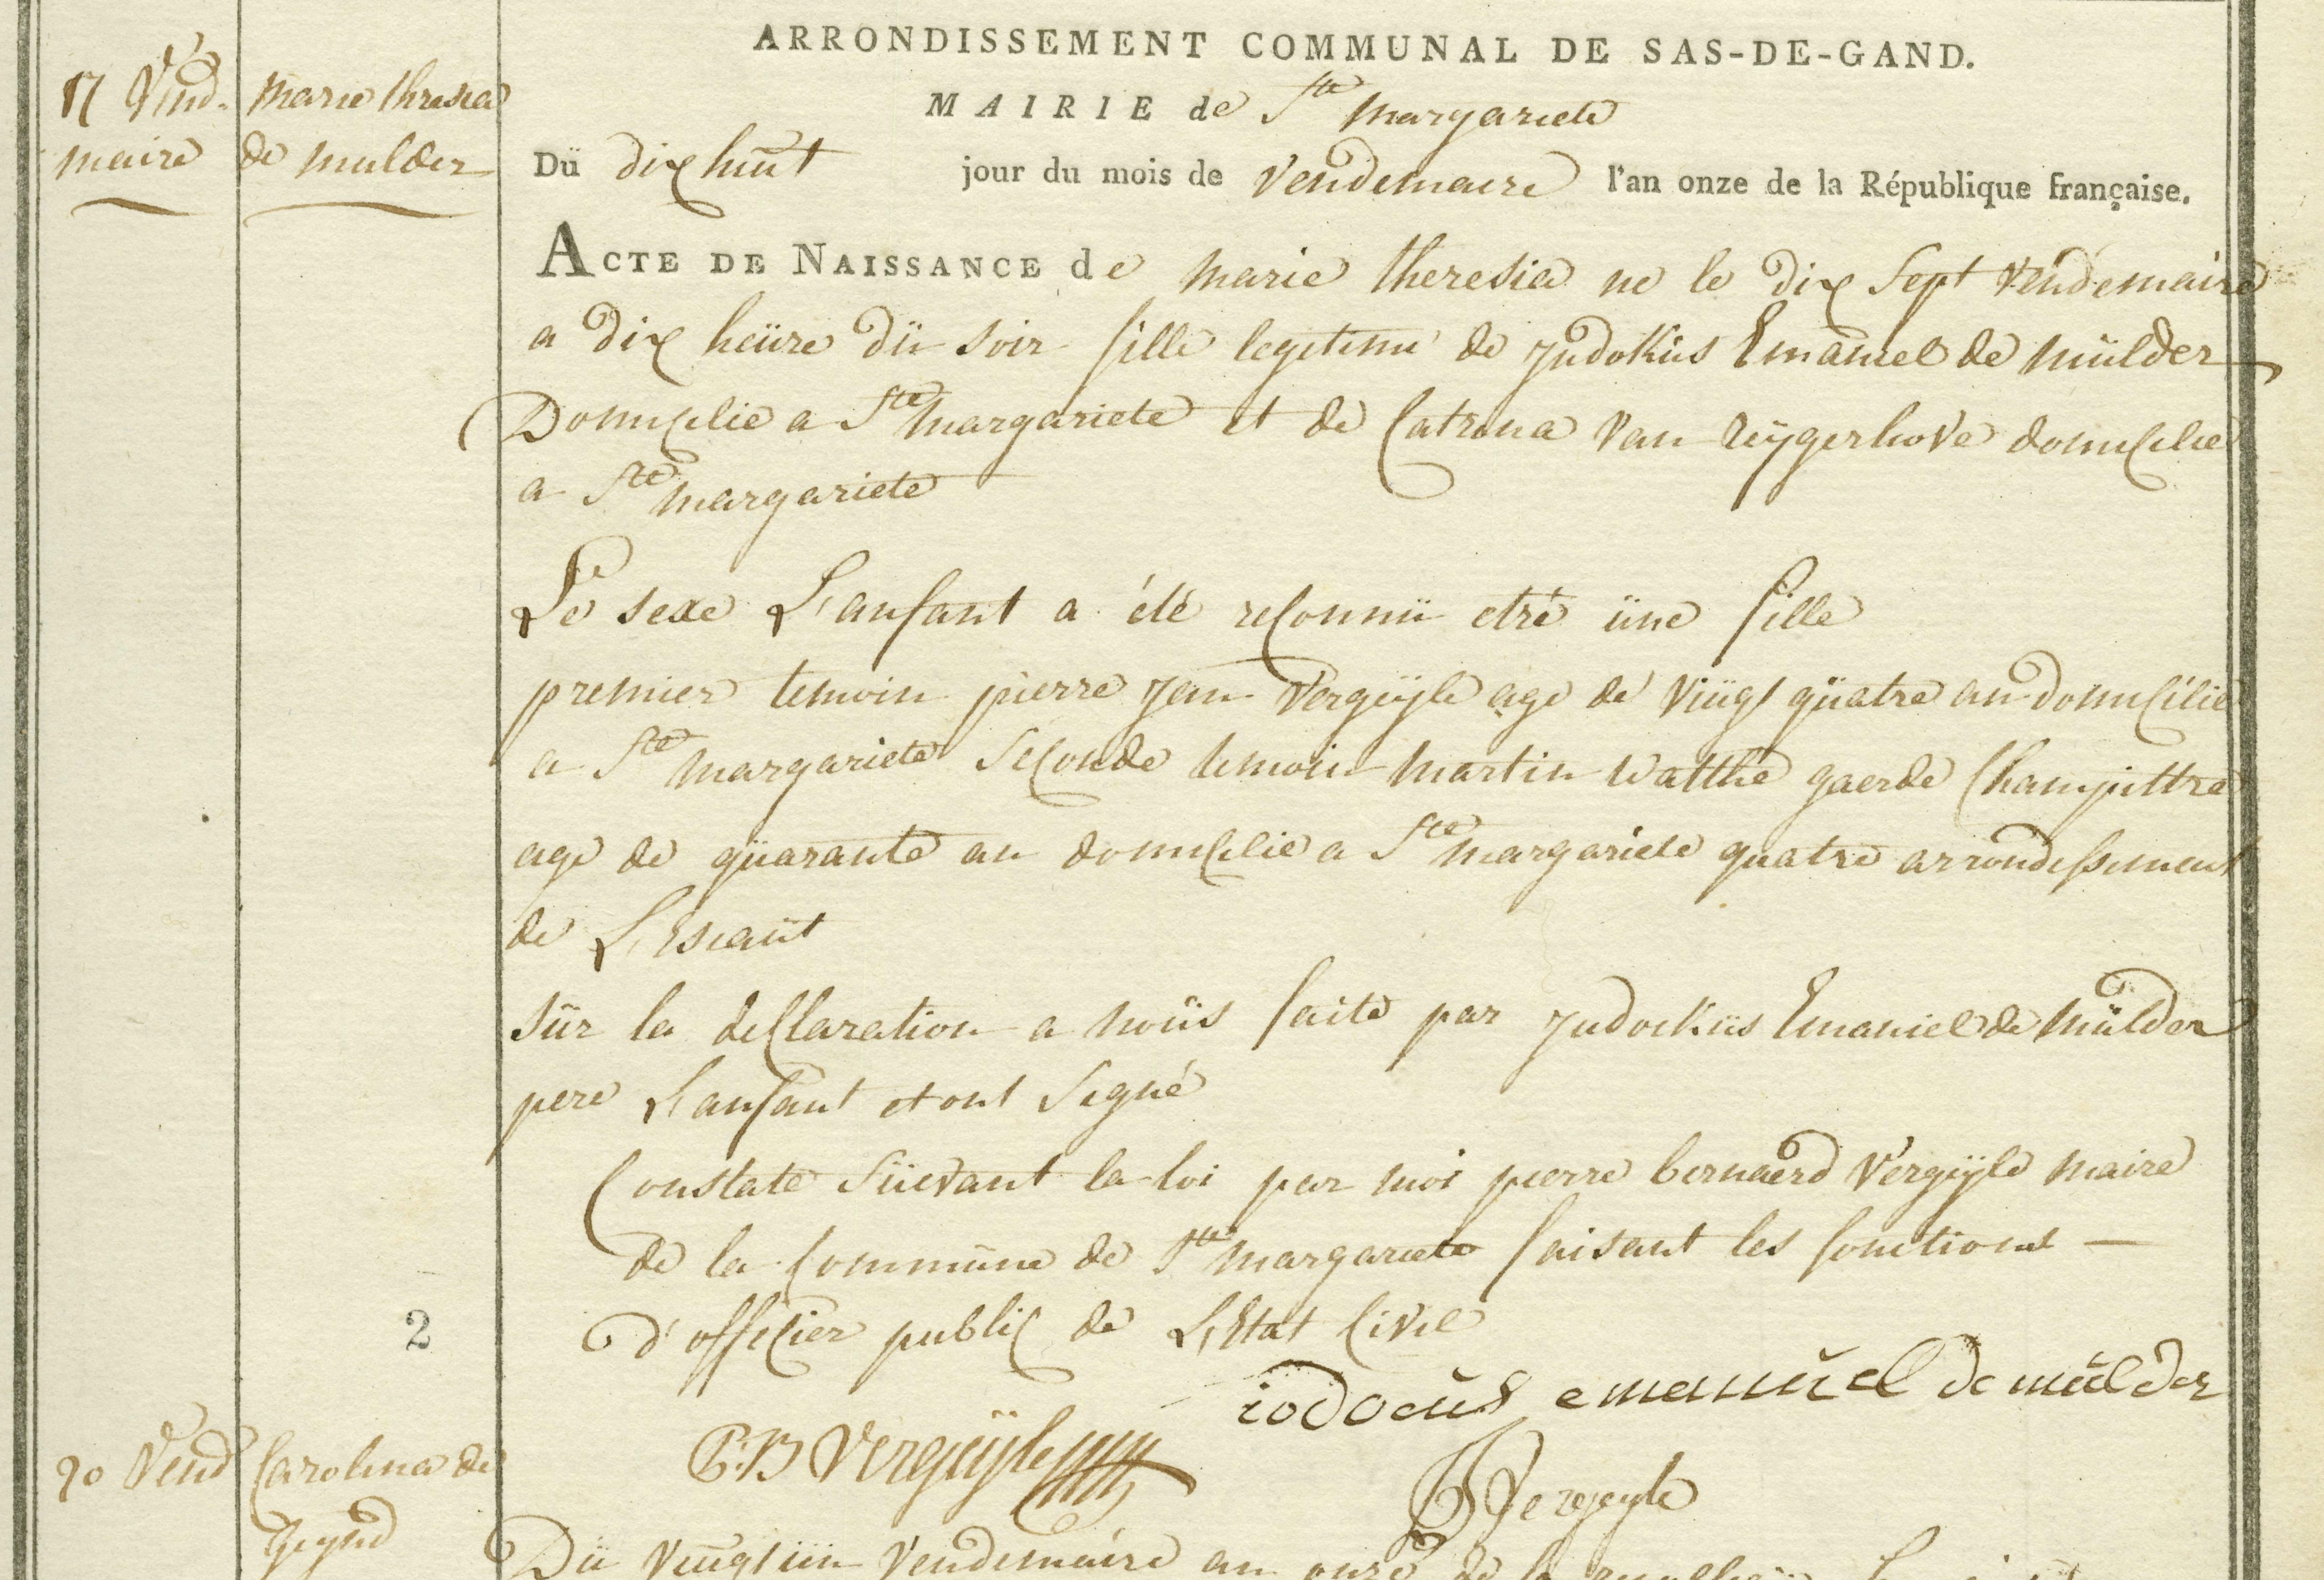 ARRONDISSEMENT COMMUNAL DE SAS-DE-GAND.
MAIRIE de Ste margariete
17 Vend.
maire
marie thresia
de mulder
Dü dix hüit jour du mois de Vendemaire l'an onze de la République française.
ACTE DE NAISSANCE de marie theresia ne le dix Sept Vendemaire
a dix heüre dü soir fille legitime de judoküs Emaniel de mülder
Domicilie a Ste margariete et de Catrina Van reÿgerhove domicilie
a Ste margariete
Le sexe L'anfant a été reconnü etre üne fille
premier temoin pierre jean Vergeÿle age de Vüigt qüatre an domicilie
a Ste margariete Seconde temoin martin watthé gaerde Champittre
age de qüarante an domicilie a Ste margariete quatre arrondessement
de L'Escaüt
sür la declaration a noüs faite par judockus Emaniel de mülder
pere L'anfant et ont Segné
Constate Süevant la loi par moi pierre bernaerd Vergeÿle maire
de la commüne de Ste margariete faisant les fonctions —
d'officier public de L'Etat Civil
2
iodocüs emanüel de mülder
P:B Vergeÿle
Vergeyle
20 Vend
Carolina de
Dü Veügt üin Vendemaire an onze de la